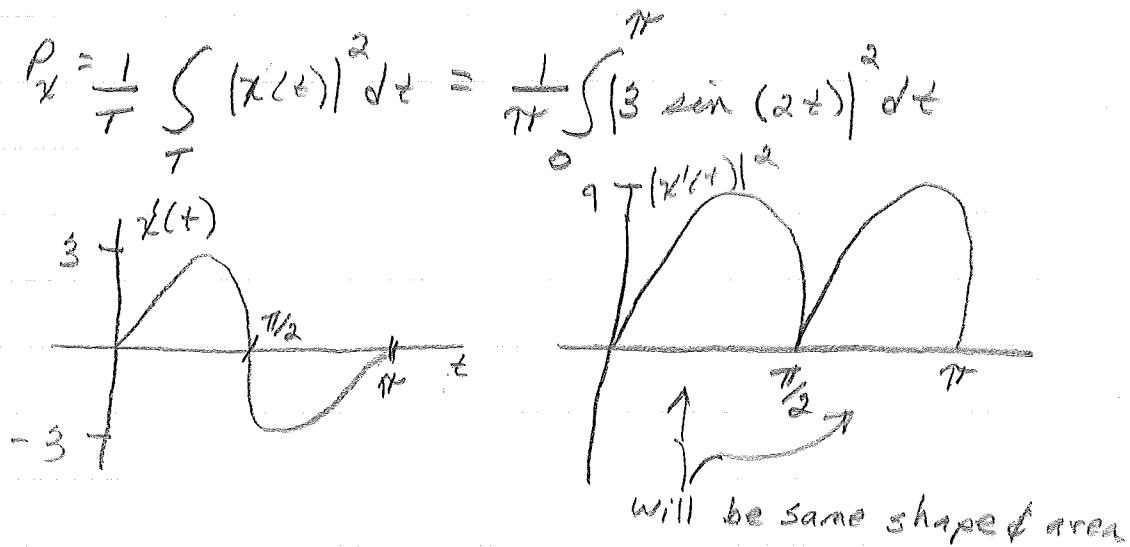 Pₓ = 1/T ∫_T |x(t)|² dt = 1/π ∫₀^π |3 sin (2t)|² dt
x'(t)
3
π/2
π
t
-3
9
|x'(t)|²
π/2
π
will be same shape & area